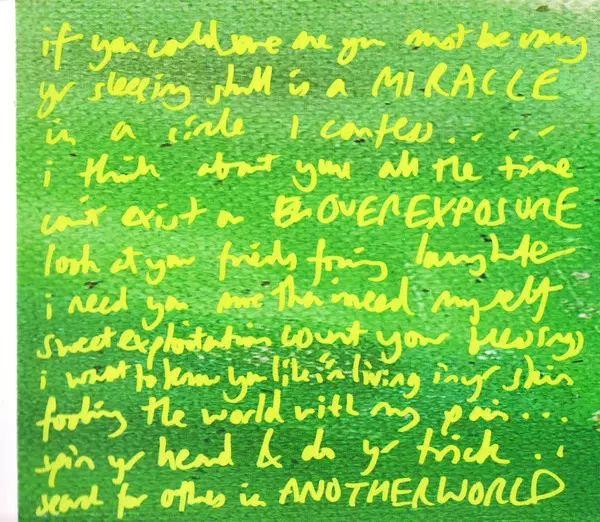 if you could love me you must be crazy
yr sleeping skull is a MIRACLE
in a circle I confess.....
i think about you all the time
can't exist on OVEREXPOSURE
look at your friends laughter
i need you more than i need myself
sweet exploitation count your blessings
i want to know you like i'm living in yr skin
the world with my pain...
spin yr head & do yr trick..
search for others in ANOTHERWORLD